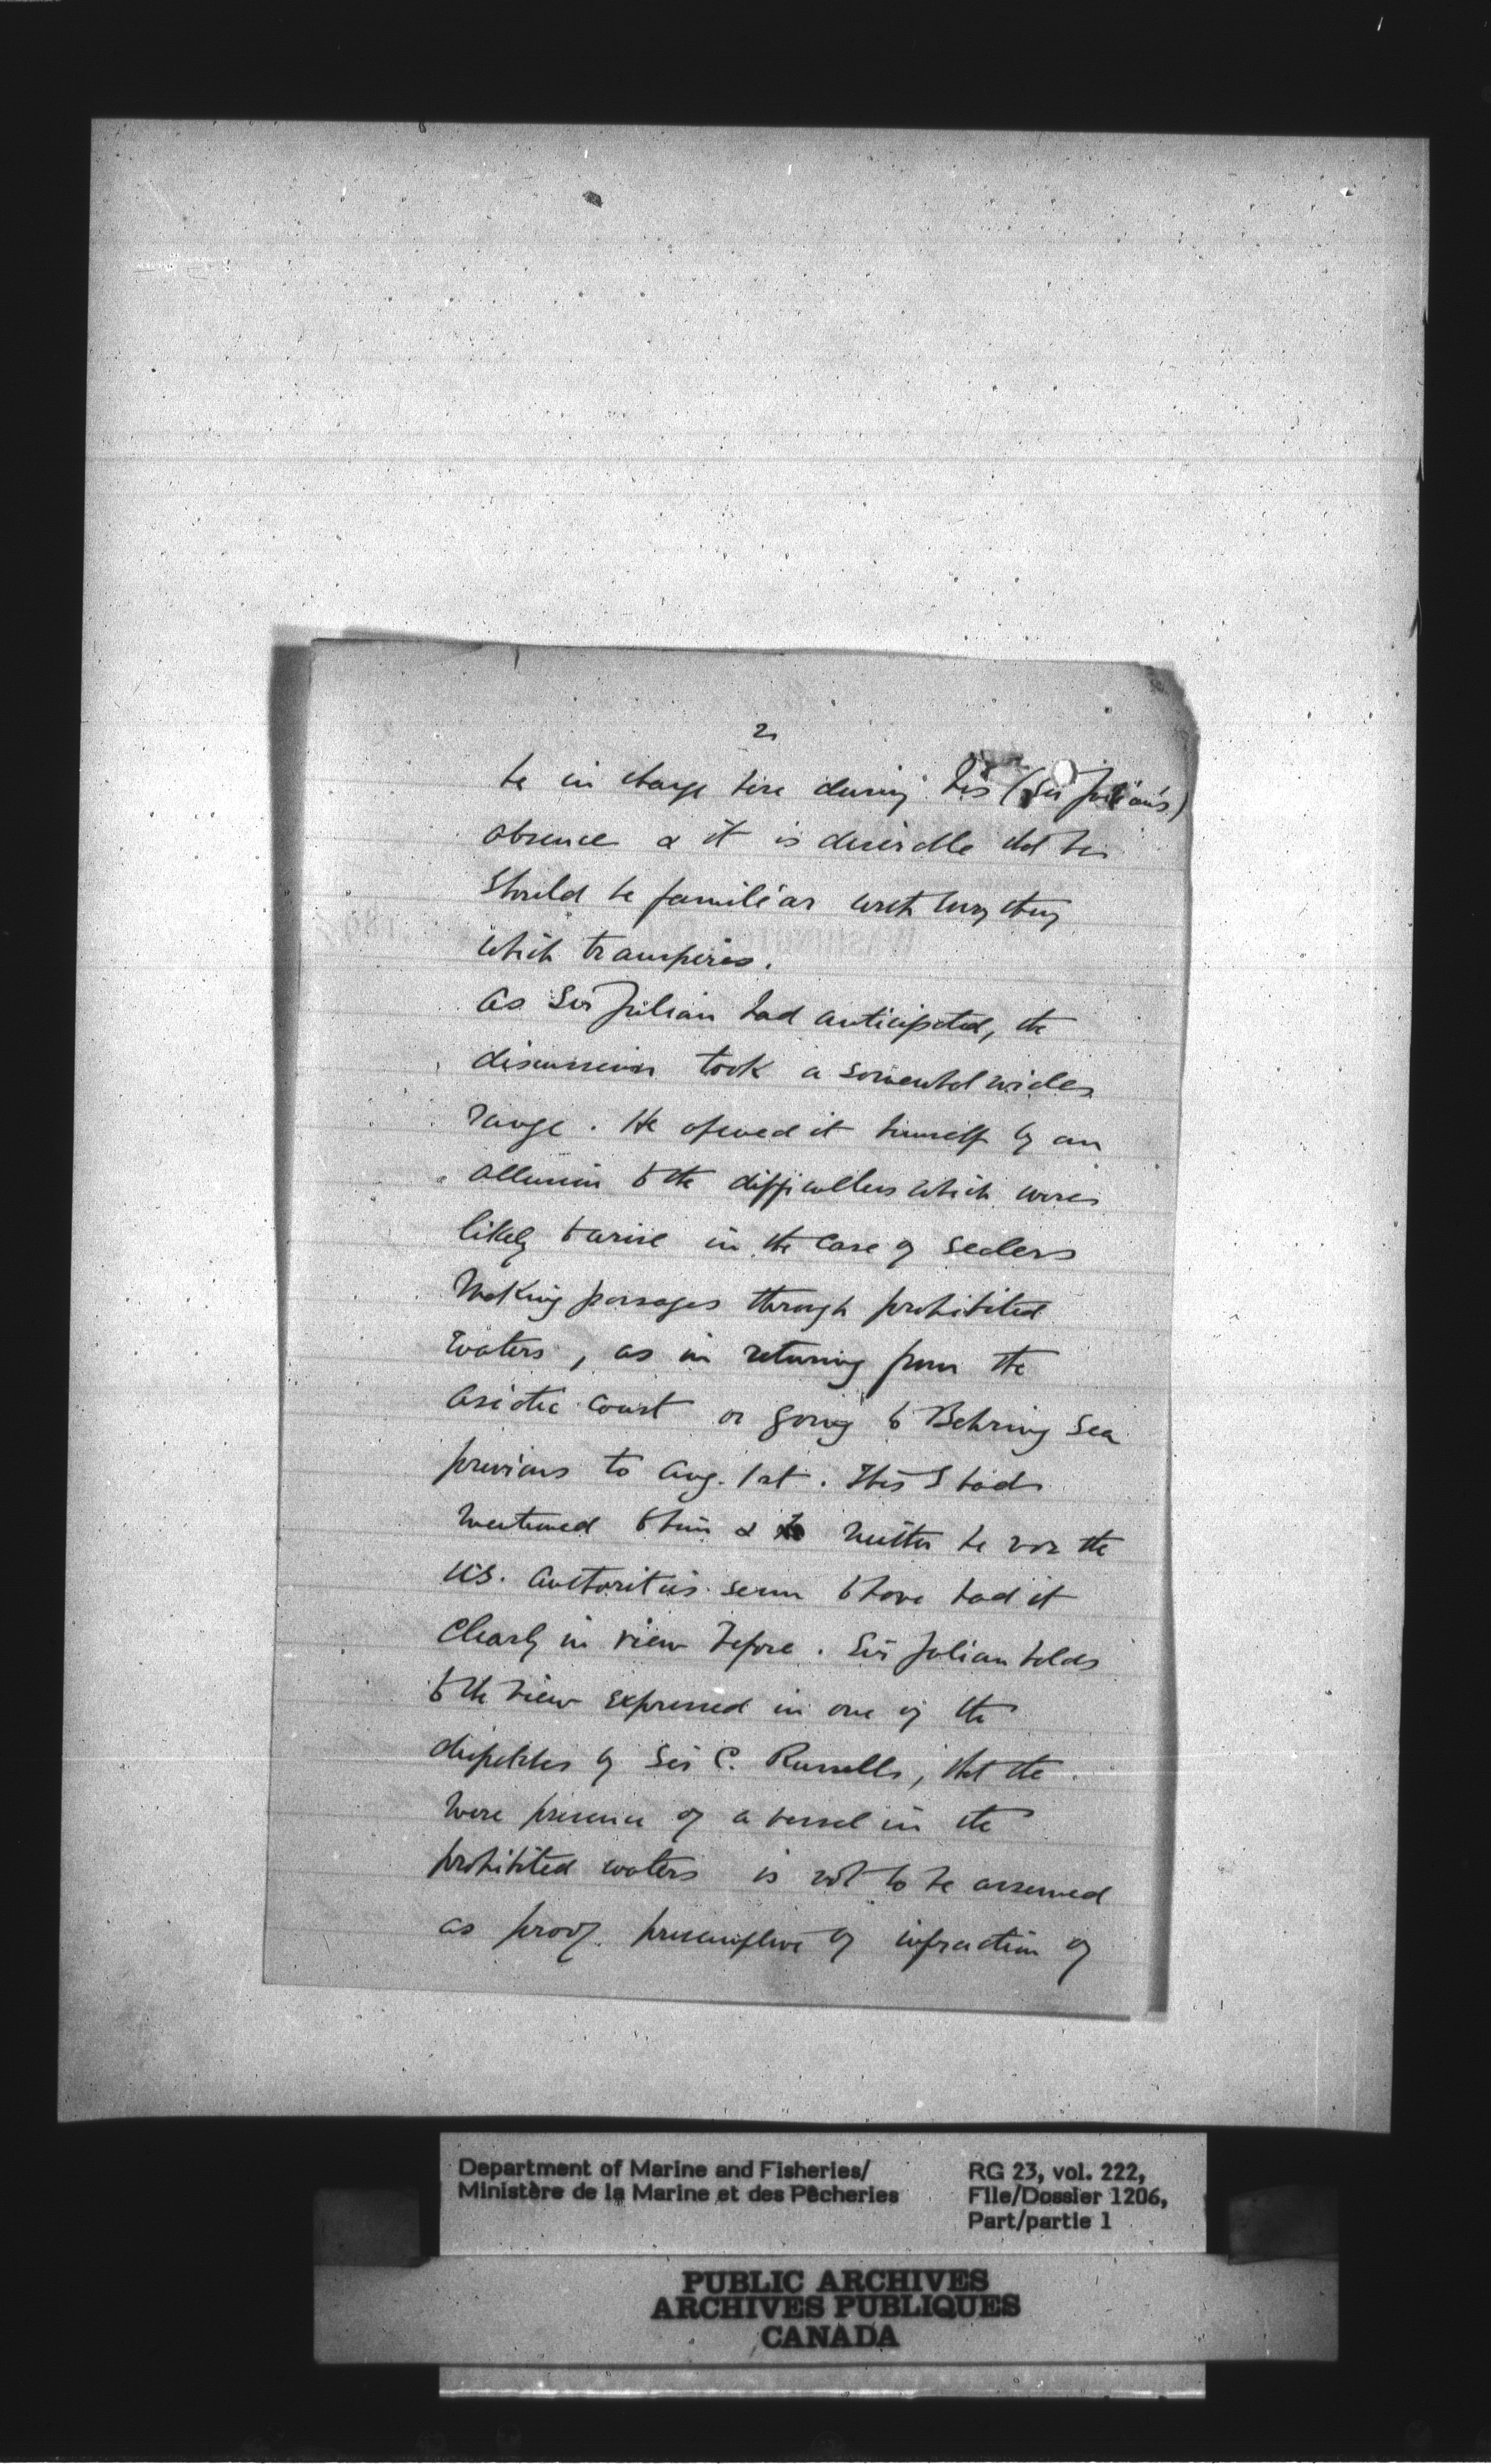 2
be in charge here during his (Sir Julian's)
absence & it is desirable that he
should be familiar with every thing
which transpires.
As Sir Julian had anticipated, the
discussion took a somewhat wider
range. He opened it himself by an
allusion to the difficulties which were
likely to arise in the case of sealers
making passages through prohibited
waters, as in returning from the
Asiatic coast or going to Behring Sea
previous to Aug. 1st. This I had
mentioned to him & neither he nor the
U.S. authorities seem to have had it
clearly in view before. Sir Julian holds
to the view expressed in one of the
dispatches by Sir C. Russell, that the
mere presence of a vessel in the
prohibited waters is not to be assumed
as proof presumptive of infraction of
Department of Marine and Fisheries/
Ministère de la Marine et des Pêcheries
RG 23, vol. 222,
File/Dossier 1206,
Part/partie 1
PUBLIC ARCHIVES
ARCHIVES PUBLIQUES
CANADA